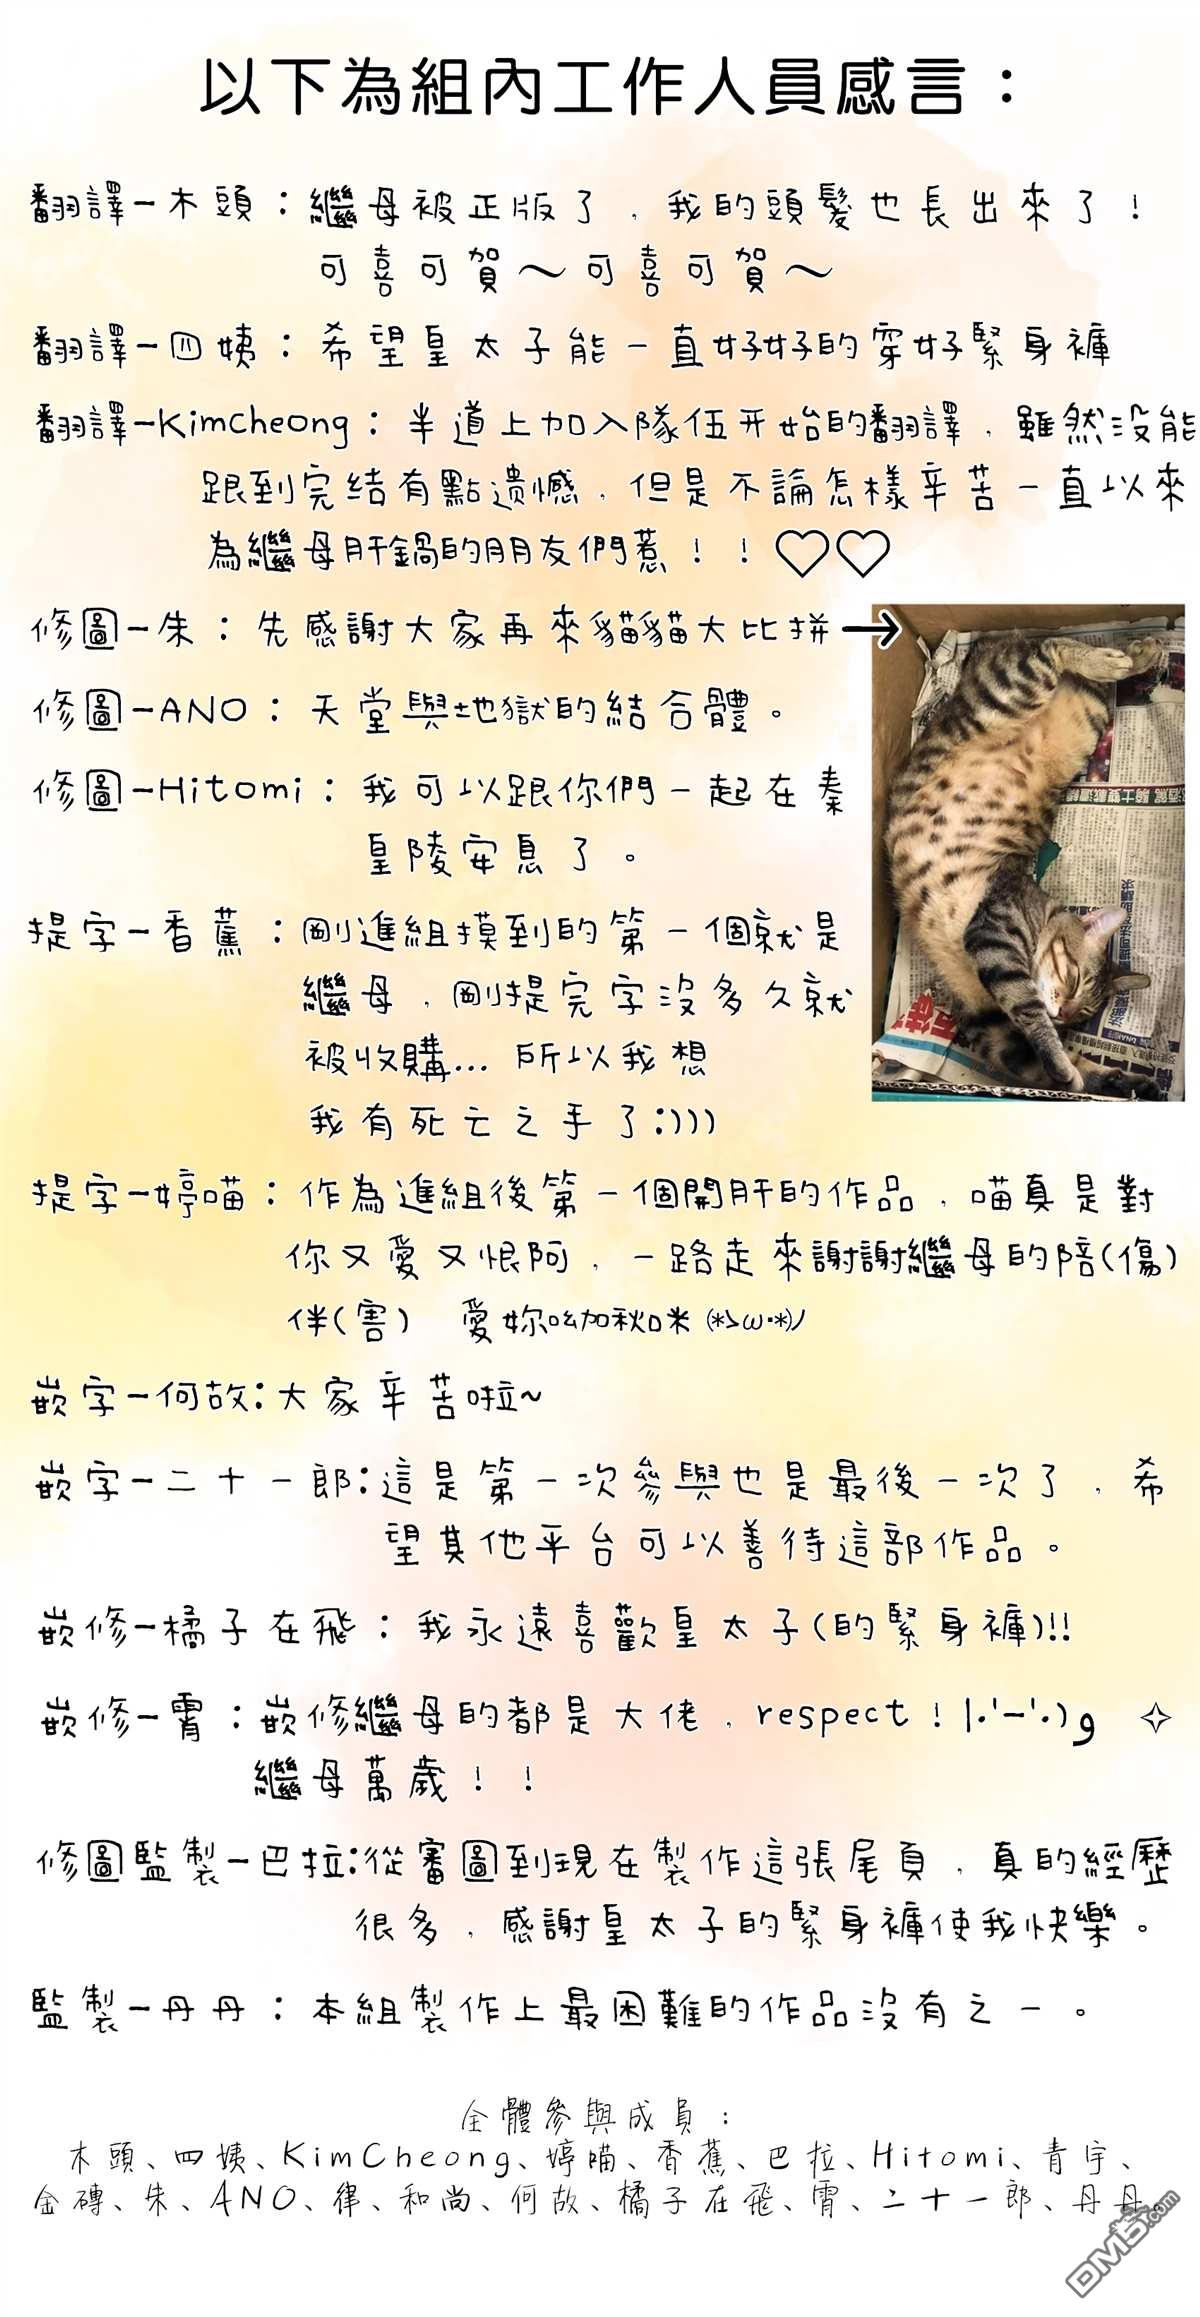 以下為組內工作人員感言：
翻譯－木頭：繼母被正版了，我的頭髮也長出來了！
可喜可賀～可喜可賀～
翻譯－四姨：希望皇太子能一直好好的穿好緊身褲
翻譯－Kimcheong：半道上加入隊伍开始的翻譯，雖然没能
跟到完结有點遗憾，但是不論怎樣辛苦一直以來
為繼母肝鍋的朋友們惹！！♡♡
修圖－朱：先感謝大家再來貓貓大比拼→
修圖－ANO：天堂與地獄的結合體。
修圖－Hitomi：我可以跟你們一起在秦
皇陵安息了。
提字－香蕉：剛進組摸到的第一個就是
繼母，剛提完字沒多久就
被收購... 所以我想
我有死亡之手了:)))
提字－婷喵：作為進組後第一個開肝的作品，喵真是對
你又愛又恨阿，一路走來謝謝繼母的陪(傷)
伴(害)　愛妳呦加秋咪 (*>ω•*)ﾉ
嵌字－何故:大家辛苦啦~
嵌字－二十一郎:這是第一次參與也是最後一次了，希
望其他平台可以善待這部作品。
嵌修－橘子在飛：我永遠喜歡皇太子(的緊身褲)!!
嵌修－霄：嵌修繼母的都是大佬，respect！|•'-'•)و ✧
繼母萬歲！！
修圖監製－巴拉:從審圖到現在製作這張尾頁，真的經歷
很多，感謝皇太子的緊身褲使我快樂。
監製－丹丹：本組製作上最困難的作品沒有之一。
全體參與成員：
木頭、四姨、KimCheong、婷喵、香蕉、巴拉、Hitomi、青宇、
金磚、朱、ANO、律、和尚、何故、橘子在飛、霄、二十一郎、丹丹。
DM5.com
酒駕
騎士雙載遭輾